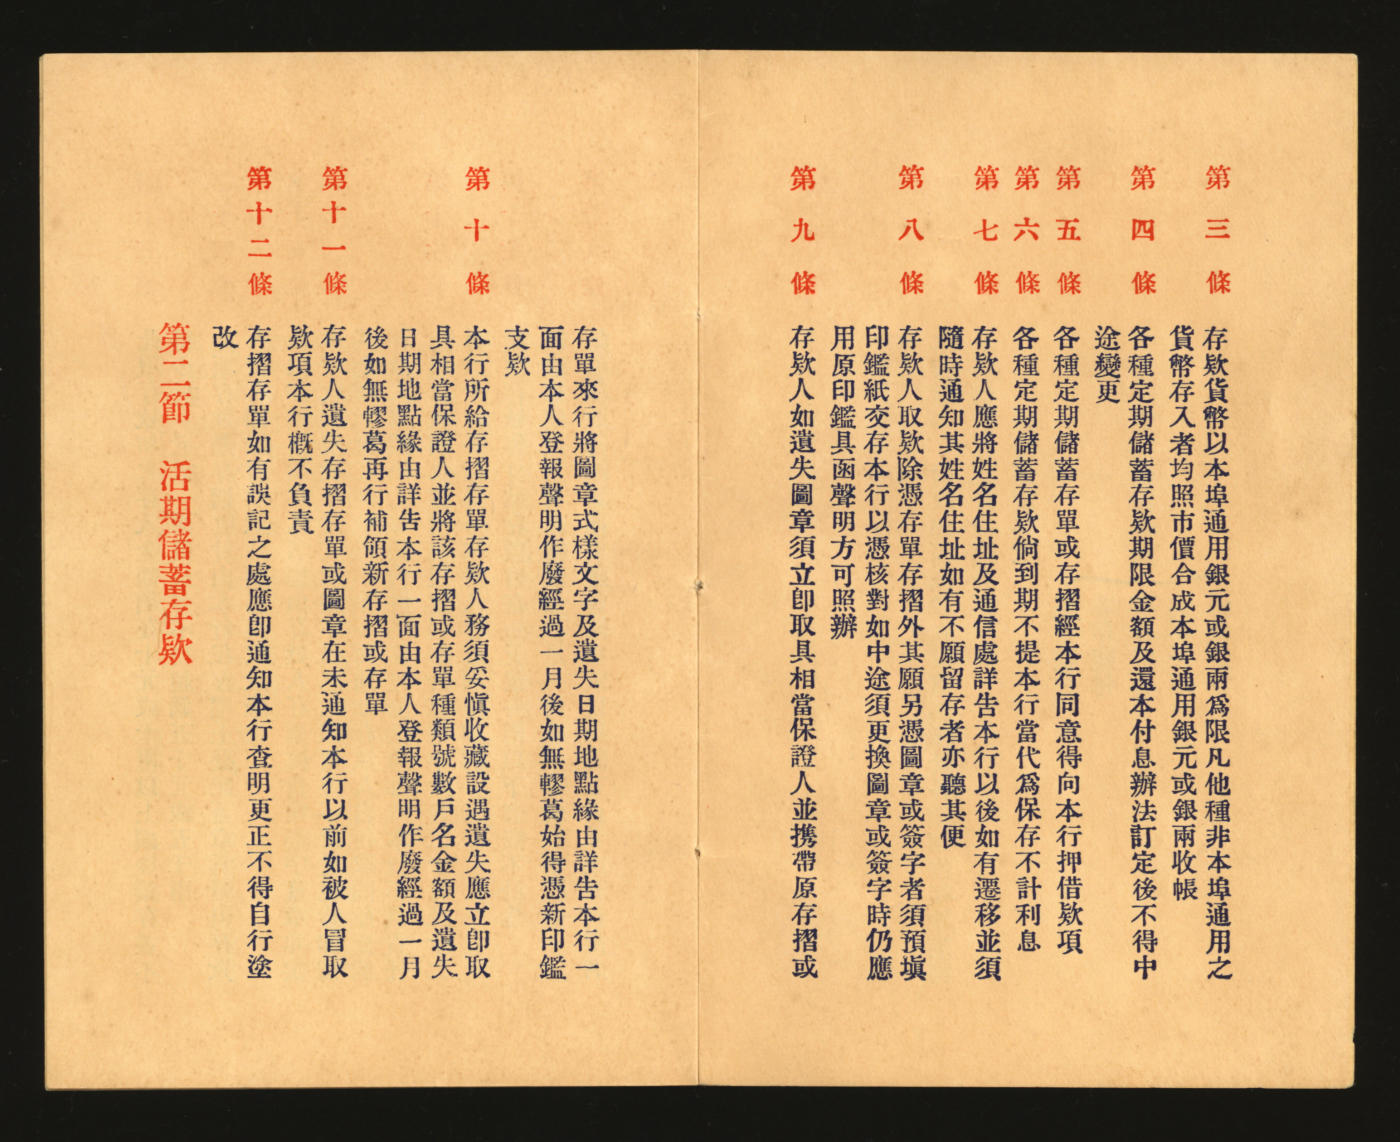 第三條 存欵貨幣以本埠通用銀元或銀兩爲限凡他種非本埠通用之
貨幣存入者均照市價合成本埠通用銀元或銀兩收帳
第四條 各種定期儲蓄存欵期限金額及還本付息辦法訂定後不得中
途變更
第五條 各種定期儲蓄存單或存摺經本行同意得向本行押借欵項
第六條 各種定期儲蓄存欵倘到期不提本行當代爲保存不計利息
第七條 存欵人應將姓名住址及通信處詳告本行以後如有遷移並須
隨時通知其姓名住址如有不願留存者亦聽其便
第八條 存欵人取欵除憑存單存摺外其願另憑圖章或簽字者須預塡
印鑑紙交存本行以憑核對如中途須更換圖章或簽字時仍應
用原印鑑具函聲明方可照辦
第九條 存欵人如遺失圖章須立卽取具相當保證人並携帶原存摺或
存單來行將圖章式樣文字及遺失日期地點緣由詳告本行一
面由本人登報聲明作廢經過一月後如無轇葛始得憑新印鑑
支欵
第十條 本行所給存摺存單存欵人務須妥愼收藏設遇遺失應立卽取
具相當保證人並將該存摺或存單種類號數戶名金額及遺失
日期地點緣由詳告本行一面由本人登報聲明作廢經過一月
後如無轇葛再行補領新存摺或存單
第十一條 存欵人遺失存摺存單或圖章在未通知本行以前如被人冒取
欵項本行槪不負責
第十二條 存摺存單如有誤記之處應卽通知本行查明更正不得自行塗
改
第二節 活期儲蓄存欵